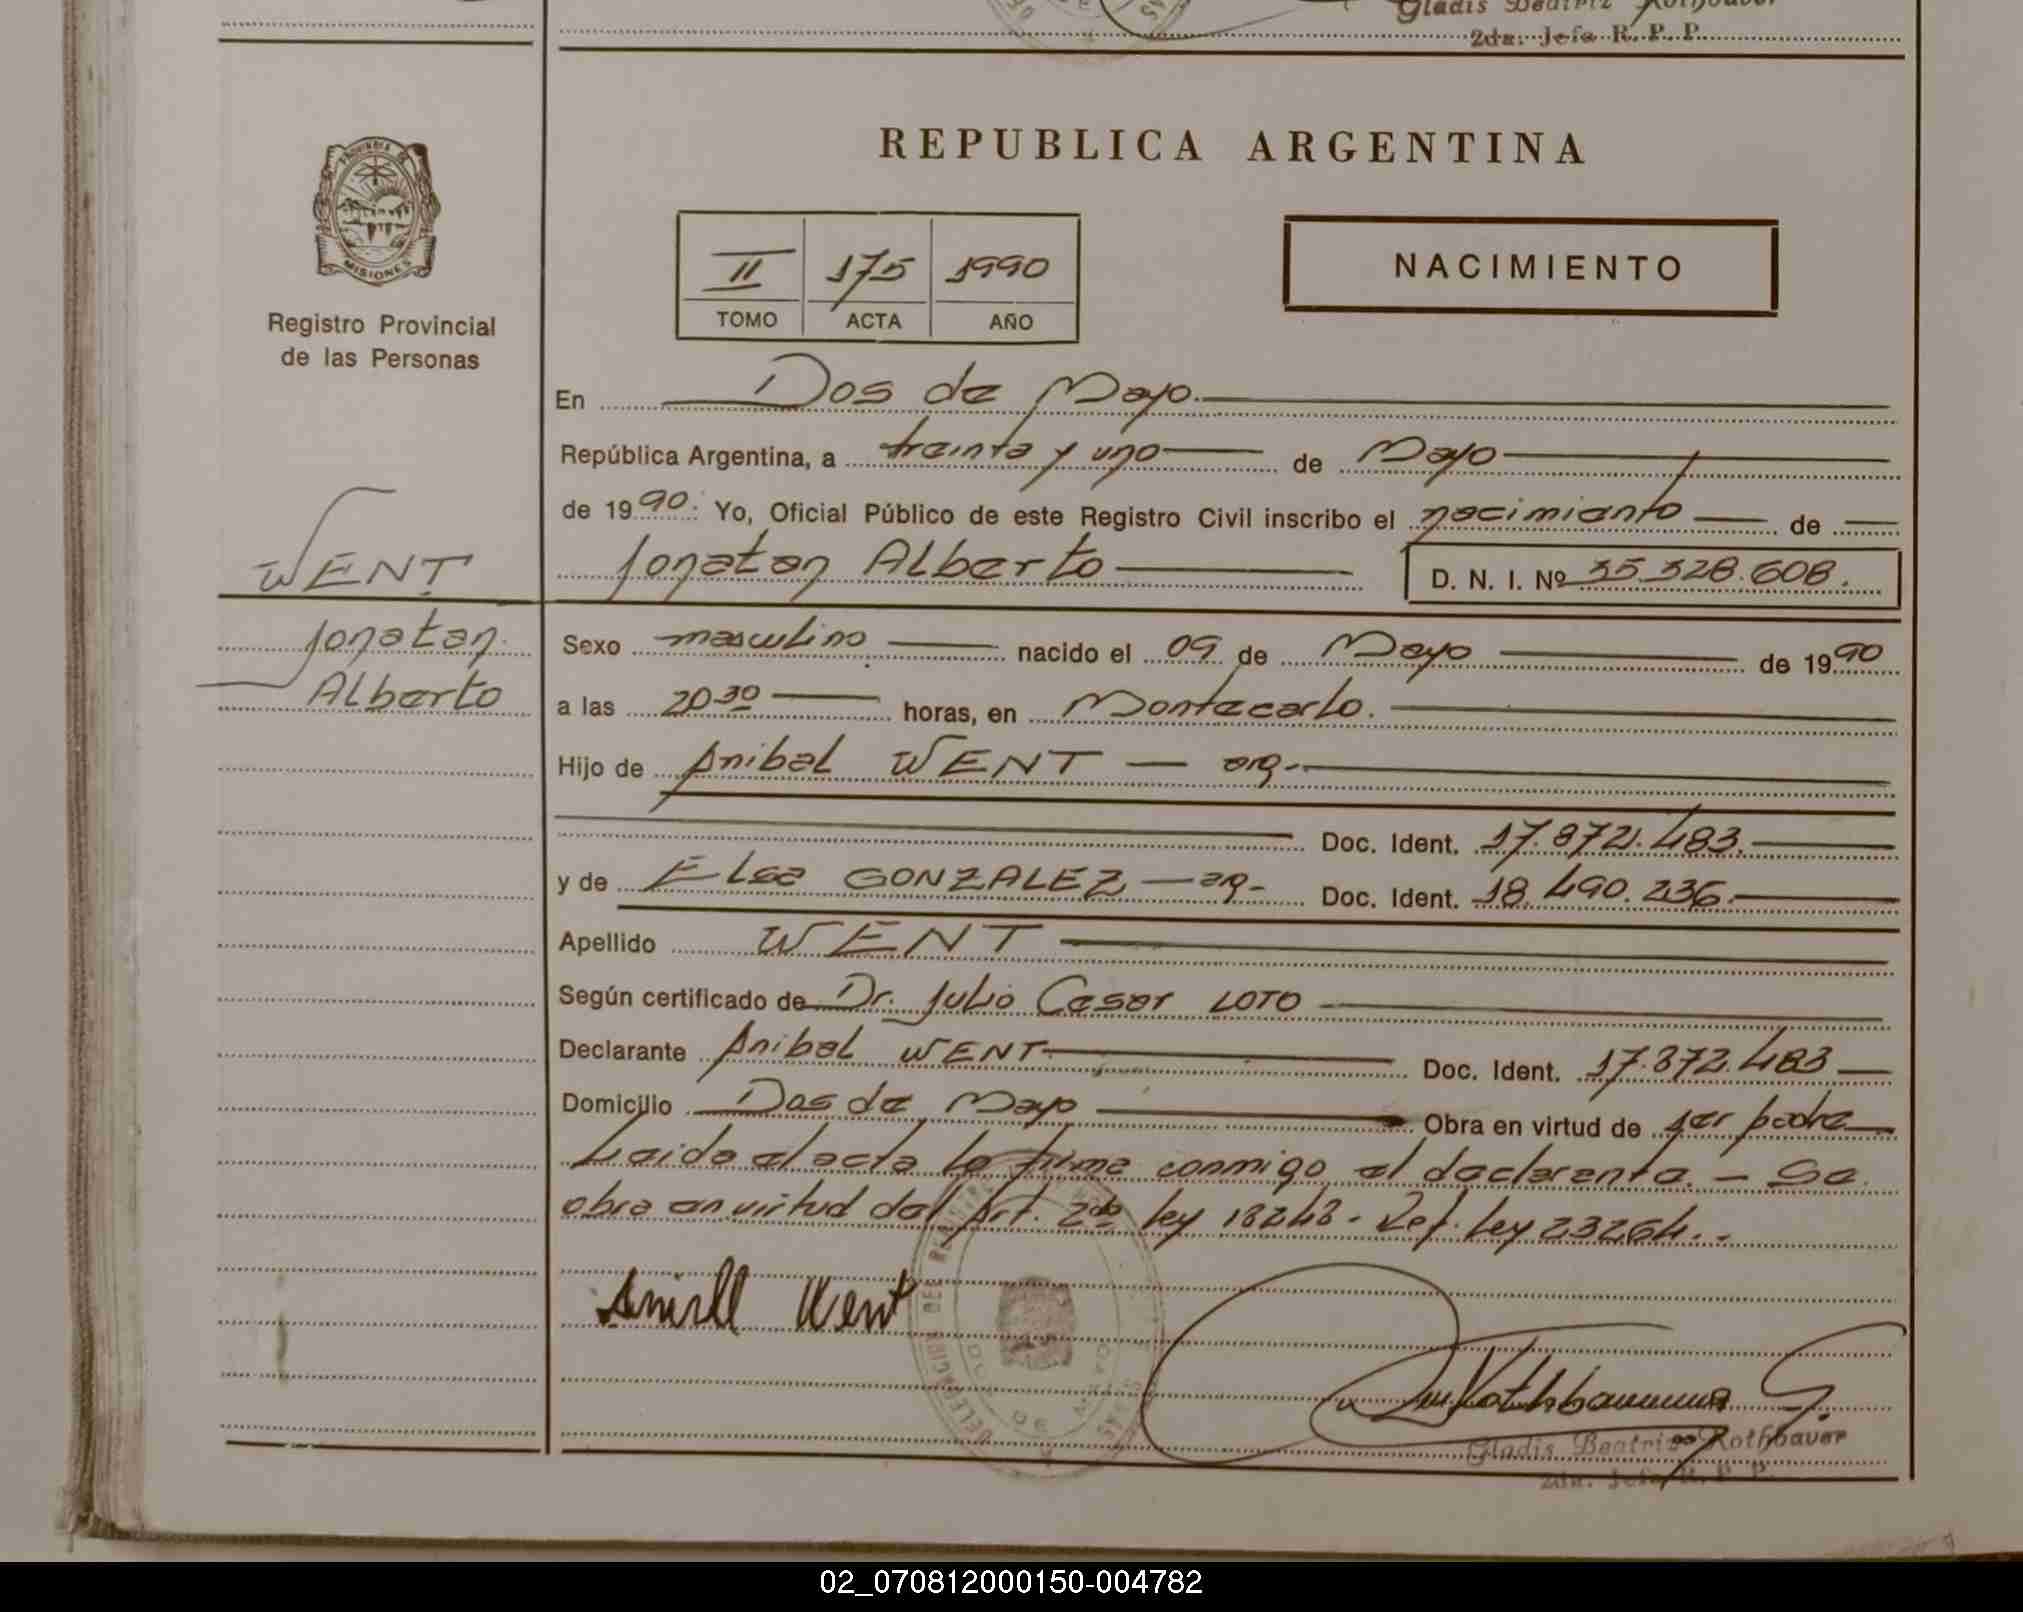 Gladis Beatriz Rothbauer
2da. Jefa R. P. P.
REPUBLICA ARGENTINA
PROVINCIA DE
MISIONES
Registro Provincial
de las Personas
II 175 1990
TOMO ACTA AÑO
NACIMIENTO
En Dos de Mayo.
República Argentina, a treinta y uno de Mayo
de 1990: Yo, Oficial Público de este Registro Civil inscribo el nacimiento de
WENT
Jonatan Alberto D. N. I. Nº 35.328.608.
Jonatan
Alberto
Sexo masculino nacido el 09 de Mayo de 1990
a las 20 30 horas, en Montecarlo.
Hijo de Anibal WENT — arg.
Doc. Ident. 17.872.483.
y de Elsa GONZALEZ — arg. Doc. Ident. 18.490.236.
Apellido WENT
Según certificado de Dr. Julio Cesar LOTO
Declarante Anibal WENT Doc. Ident. 17.872.483
Domicilio Dos de Mayo Obra en virtud de ser padre
Leida el acta la firma conmigo el declarante. — Se
obra en virtud del Art. 2do ley 18248 - Ref. ley 23264..
Went
Gladis Beatriz Rothbauer
2da. Jefa R. P. P.
02_070812000150-004782